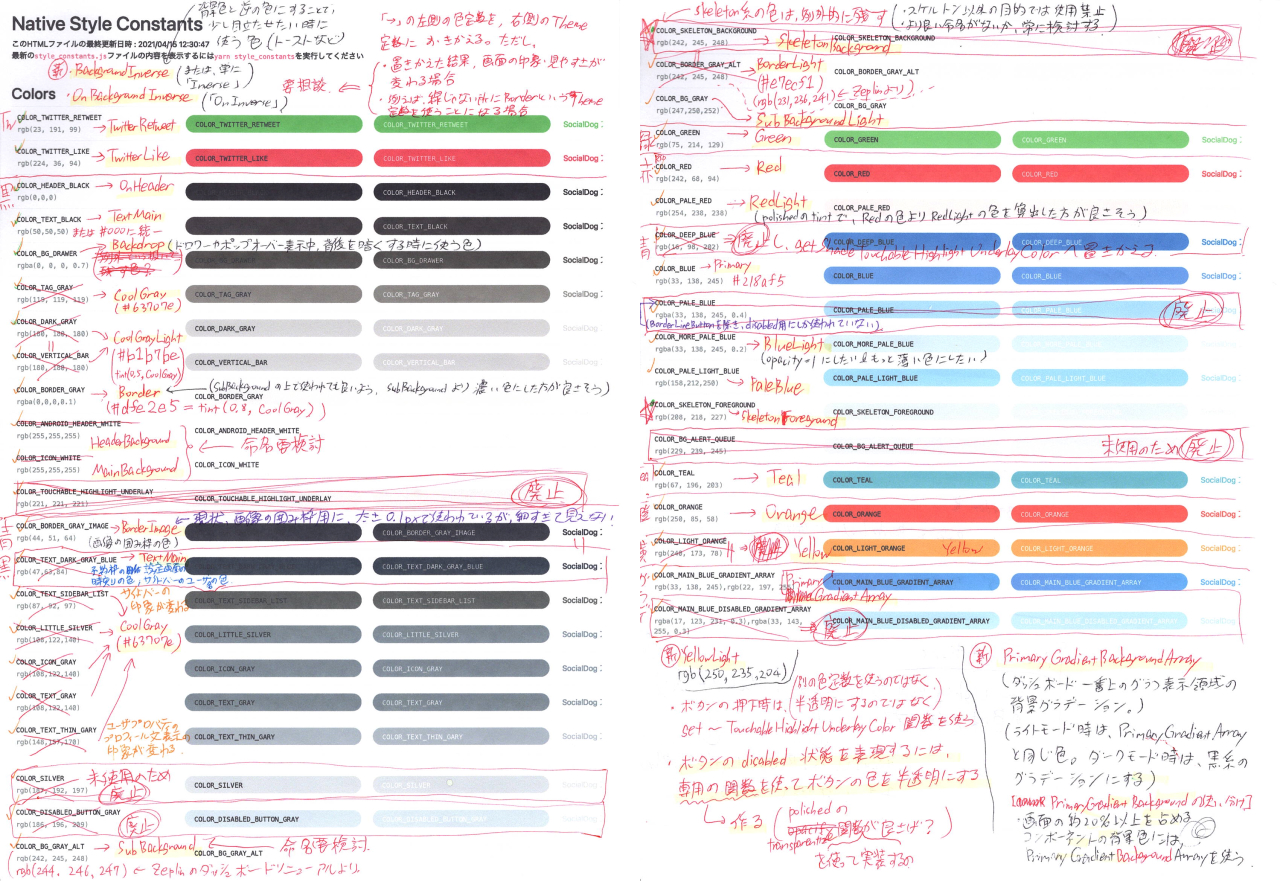 Native Style Constants
背景色と逆の色にすることで、
少し目立たせたい時に
使う色(トーストなど)
このHTMLファイルの最終更新日時 : 2021/04/15 12:30:47
最新のstyle_constants.jsファイルの内容を表示するにはyarn style_constantsを実行してください
新 ・BackgroundInverse (または、単に「Inverse」)
・OnBackgroundInverse (「OnInverse」)
「→」の左側の色定数を、右側のTheme
定数に おきかえる。ただし、
・置きかえた結果、画面の印象・見やすさが
変わる場合
・例えば、線じゃない所にBorderというTheme
定数を使うことになる場合
要相談 ←
Colors
COLOR_TWITTER_RETWEET → TwitterRetweet COLOR_TWITTER_RETWEET COLOR_TWITTER_RETWEET SocialDog :
rgb(23, 191, 99)
COLOR_TWITTER_LIKE → TwitterLike COLOR_TWITTER_LIKE COLOR_TWITTER_LIKE SocialDog :
rgb(224, 36, 94)
黒
COLOR_HEADER_BLACK → OnHeader COLOR_HEADER_BLACK SocialDog :
rgb(0,0,0)
COLOR_TEXT_BLACK → TextMain COLOR_TEXT_BLACK SocialDog :
rgb(50,50,50) または #000に統一
Backdrop (ドロワーやポップオーバー表示中、背後を暗くする時に使う色)
COLOR_BG_DRAWER COLOR_BG_DRAWER COLOR_BG_DRAWER SocialDog :
rgba(0, 0, 0, 0.7)
COLOR_TAG_GRAY → CoolGray COLOR_TAG_GRAY COLOR_TAG_GRAY SocialDog :
rgb(119, 119, 119) (#63707e)
COLOR_DARK_GRAY → CoolGrayLight COLOR_DARK_GRAY COLOR_DARK_GRAY SocialDog :
rgb(180, 180, 180) (#b1b7be)
COLOR_VERTICAL_BAR tint(0.5, CoolGray) COLOR_VERTICAL_BAR COLOR_VERTICAL_BAR SocialDog :
rgb(180, 180, 180)
COLOR_BORDER_GRAY → Border ← (SubBackgroundの上で使われても良いよう、subBackgroundより濃い色にした方が良さそう)
COLOR_BORDER_GRAY
rgba(0,0,0,0.1) (#dfe2e5 = tint(0.8, CoolGray))
COLOR_ANDROID_HEADER_WHITE COLOR_ANDROID_HEADER_WHITE
rgb(255,255,255) HeaderBackground ← 命名要検討
COLOR_ICON_WHITE COLOR_ICON_WHITE
rgb(255,255,255) MainBackground
COLOR_TOUCHABLE_HIGHLIGHT_UNDERLAY COLOR_TOUCHABLE_HIGHLIGHT_UNDERLAY 廃止
rgb(221, 221, 221)
← 現状、画像の囲み枠用に、太さ0.1pxで使われているが、細すぎて見えない!
青黒
COLOR_BORDER_GRAY_IMAGE → BorderImage COLOR_BORDER_GRAY_IMAGE SocialDog :
rgb(44, 51, 64) (画像の囲み枠の色)
COLOR_TEXT_DARK_GRAY_BLUE → TextMain COLOR_TEXT_DARK_GRAY_BLUE SocialDog :
rgb(47,63,84)
COLOR_TEXT_SIDEBAR_LIST サイドバーの COLOR_TEXT_SIDEBAR_LIST COLOR_TEXT_SIDEBAR_LIST SocialDog :
rgb(87, 92, 97) 印象が変わる
COLOR_LITTLE_SILVER → CoolGray COLOR_LITTLE_SILVER COLOR_LITTLE_SILVER SocialDog :
rgb(108,122,140) (#63707e)
COLOR_ICON_GRAY COLOR_ICON_GRAY COLOR_ICON_GRAY SocialDog :
rgb(108,122,140)
COLOR_TEXT_GRAY COLOR_TEXT_GRAY COLOR_TEXT_GRAY SocialDog :
rgb(108,122,140)
COLOR_TEXT_THIN_GRAY COLOR_TEXT_THIN_GRAY COLOR_TEXT_THIN_GRAY SocialDog :
rgb(148,157,170)
ユーザプロパティの
プロフィール文表示の
印象が変わる
COLOR_SILVER ← 未使用のため 廃止 COLOR_SILVER COLOR_SILVER SocialDog :
rgb(187, 192, 197)
COLOR_DISABLED_BUTTON_GRAY 廃止 COLOR_DISABLED_BUTTON_GRAY COLOR_DISABLED_BUTTON_GRAY SocialDog :
rgb(186, 196, 209)
COLOR_BG_GRAY_ALT → SubBackground COLOR_BG_GRAY_ALT ← 命名要検討.
rgb(242, 245, 248)
(rgb(244, 246, 247) ← Zeplinのダッシュボードリニューアルより
skeleton系の色は、例外的に残す
・スケルトン以外の目的では使用禁止
・より良い命名がないか、常に検討する
COLOR_SKELETON_BACKGROUND → SkeletonBackground COLOR_SKELETON_BACKGROUND
rgb(242, 245, 248)
COLOR_BORDER_GRAY_ALT → BorderLight COLOR_BORDER_GRAY_ALT
rgb(242, 245, 248) (#e7ec51)
(rgb(231,236,241) ← Zeplinより)
COLOR_BG_GRAY COLOR_BG_GRAY
rgb(247,250,252) SubBackgroundLight
COLOR_GREEN → Green COLOR_GREEN COLOR_GREEN SocialDog :
rgb(75, 214, 129)
赤
COLOR_RED → Red COLOR_RED COLOR_RED SocialDog :
rgb(242, 68, 94)
COLOR_PALE_RED → RedLight COLOR_PALE_RED
rgb(254, 238, 238) (polishedのtintで、Redの色よりRedLightの色を算出した方が良さそう)
青
COLOR_DEEP_BLUE COLOR_DEEP_BLUE
rgb(16, 98, 202) 廃止し、getShadeTouchableHighlightUnderlayColorへ置きかえる.
COLOR_BLUE → Primary COLOR_BLUE COLOR_BLUE SocialDog :
rgb(33, 138, 245) #218af5
COLOR_PALE_BLUE COLOR_PALE_BLUE 廃止
rgba(33, 138, 245, 0.4)
(BorderLineButtonを除き、disabled用にしか使われていない)
COLOR_MORE_PALE_BLUE → BlueLight COLOR_MORE_PALE_BLUE SocialDog :
rgba(33, 138, 245, 0.2) (opacity=1にしたい&もっと薄い色にしたい)
COLOR_PALE_LIGHT_BLUE → PaleBlue COLOR_PALE_LIGHT_BLUE COLOR_PALE_LIGHT_BLUE SocialDog :
rgb(158,212,250)
COLOR_SKELETON_FOREGROUND → SkeletonForeground COLOR_SKELETON_FOREGROUND
rgb(208, 218, 227)
COLOR_BG_ALERT_QUEUE COLOR_BG_ALERT_QUEUE 未使用のため 廃止
rgb(229, 239, 245)
COLOR_TEAL → Teal COLOR_TEAL COLOR_TEAL SocialDog :
rgb(67, 196, 203)
COLOR_ORANGE → Orange COLOR_ORANGE COLOR_ORANGE SocialDog :
rgb(250, 85, 58)
COLOR_LIGHT_ORANGE → Yellow COLOR_LIGHT_ORANGE Yellow COLOR_LIGHT_ORANGE SocialDog :
COLOR_MAIN_BLUE_GRADIENT_ARRAY Primary COLOR_MAIN_BLUE_GRADIENT_ARRAY COLOR_MAIN_BLUE_GRADIENT_ARRAY SocialDog :
rgb(33, 138, 245),rgb(22, 197, GradientArray
COLOR_MAIN_BLUE_DISABLED_GRADIENT_ARRAY
rgba(17, 123, 231, 0.3),rgba(33, 143, 255, 0.3) → 廃止 COLOR_MAIN_BLUE_DISABLED_GRADIENT_ARRAY COLOR_MAIN_BLUE_DISABLED_GRADIENT_ARRAY SocialDog :
新 YellowLight
rgb(250, 235, 204)
・ボタンの押下時は、(別の色定数を使うのではなく、
半透明にするのではなく)
get~TouchableHighlightUnderlayColor 関数を使う
・ボタンの disabled 状態を表現するには、
専用の関数を使ってボタンの色を半透明にする
→ 作る (polishedの
transparentize 関数が良さげ?)
を使って実装する
新 PrimaryGradientBackgroundArray
(ダッシュボード一番上のグラフ表示領域の
背景グラデーション。)
(ライトモード時は、PrimaryGradientArray
と同じ色。ダークモード時は、黒系の
グラデーションにする)
[PrimaryGradientBackgroundの使い分け]
・画面の約20%以上を占める
コンポーネントの背景色には、
PrimaryGradientBackgroundArrayを使う